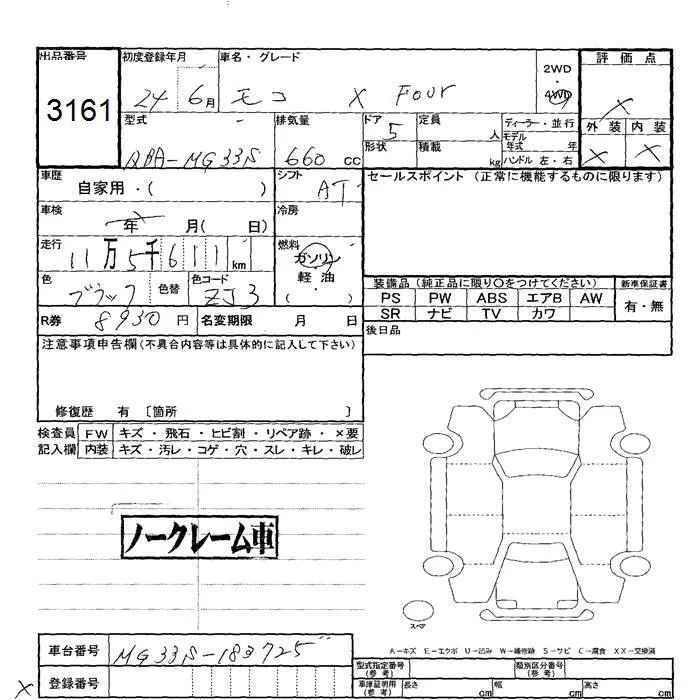 出品番号 初度登録年月 車名・グレード 2WD・4WD 評価点
3161 24 6月 モコ X Four X
型式 排気量 ドア 定員 ディーラー・並行 外装 内装
DBA-MG33S 660 cc 5 人 モデル年式 年 X X
形状 積載 kg ハンドル 左・右
車歴 シフト セールスポイント (正常に機能するものに限ります)
自家用・( ) AT
車検 冷房
年 月( 日)
走行 燃料
11万5千611km ガソリン
色 色替 色コード 軽油 装備品 (純正品に限り〇をつけてください) 新車保証書
ブラック ZJ3 ( ) PS PW ABS エアB AW 有・無
SR ナビ TV カワ
R券 8930円 名変期限 月 日 後日品
注意事項申告欄(不具合内容等は具体的に記入して下さい)
修復歴 有 〔箇所 〕
検査員 FW キズ・飛石・ヒビ割・リペア跡・×要
記入欄 内装 キズ・汚レ・コゲ・穴・スレ・キレ・破レ
ノークレーム車
スペア
A―キズ E―エクボ U―凹み W―補修跡 S―サビ C―腐食 XX―交換済
車台番号 MG33S-183725
型式指定番号(参考) 類別区分番号(参考)
X 登録番号
車庫証明用(参考) 長さ cm 幅 cm 高さ cm